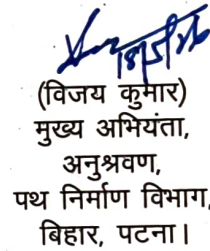 18/5/26
(विजय कुमार)
मुख्य अभियंता,
अनुश्रवण,
पथ निर्माण विभाग,
बिहार, पटना।